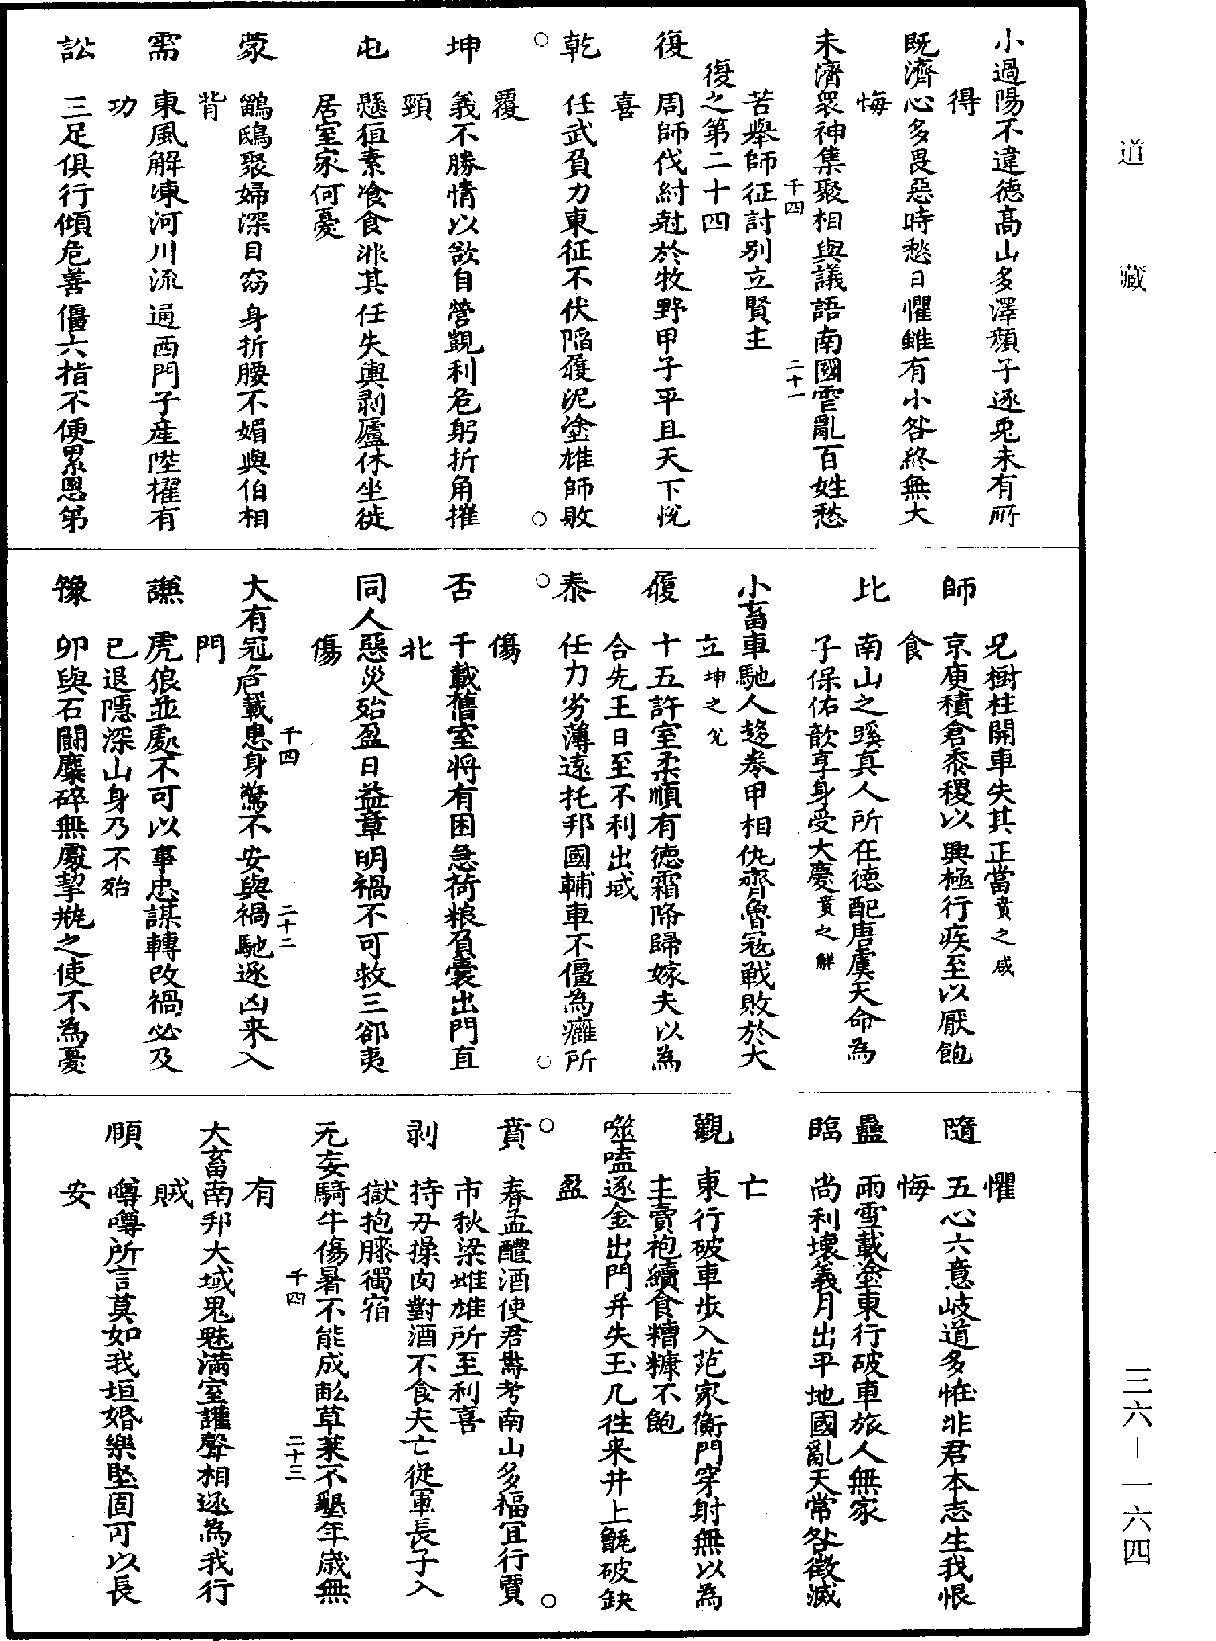 道藏
小過陽不違德高山多澤顏子逐兎未有所
得
既濟心多畏惡時愁日懼雖有小咎終無大
悔
未濟眾神集聚相與議語南國虐亂百姓愁
千四 二十一
苦舉師征討別立賢主
復之第二十四
復 周師伐紂尅於牧野甲子平旦天下悅
喜
乾 任武負力東征不伏陷履泥塗雄師敗
覆
坤 義不勝情以欲自營覬利危躬折角摧
頸
屯 懸狟素飡食非其任失輿剥廬休坐徙
居室家何憂
蒙 鶹鴟聚婦深目窈身折腰不媚與伯相
背
需 東風解凍河川流通西門子產陞擢有
功
訟 三足俱行傾危善僵六指不便累恩弟
兄樹柱開車失其正當賁之咸
師 京庾積倉黍稷以興極行疾至以厭飽
食
比 南山之蹊真人所在德配唐虞天命為
子保佑歆享身受大慶賁之解
小畜車馳人趍卷甲相仇齊魯寇戰敗於大
立坤之兌
履 十五許室柔順有德霜降歸嫁夫以為
合先王日至不利出域
泰 任力劣薄遠托邦國輔車不僵為癰所
傷
否 千載舊室將有困急荷粮負囊出門直
北
同人惡災殆盈日益章明禍不可救三郤夷
傷
千四 二十二
大有冠危戴患身驚不安與禍馳逐凶来入
門
謙 虎狼並處不可以事忠謀轉改禍必及
已退隱深山身乃不殆
豫 卵與石鬬麋碎無處挈瓶之使不為憂
懼
隨 五心六意岐道多恠非君本志生我恨
悔
蠱 雨雪載塗東行破車旅人無家
臨 尚利壞義月出平地國亂天常咎徵滅
亡
觀 東行破車步入范家衡門穿射無以為
主賣袍續食糟糠不飽
噬嗑逐金出門并失玉几徃来井上甀破缺
盈
賁 春孟醴酒使君壽考南山多福宜行賈
市秋梁雌雄所至利喜
剥 持刃操肉對酒不食夫亡從軍長子入
獄抱膝獨宿
无妄騎牛傷暑不能成畝草萊不墾年歲無
千四 二十三
有
大畜南邦大域鬼魅滿室讙聲相逐為我行
賊
頤 噂噂所言莫如我垣婚樂堅固可以長
安
三六—一六四